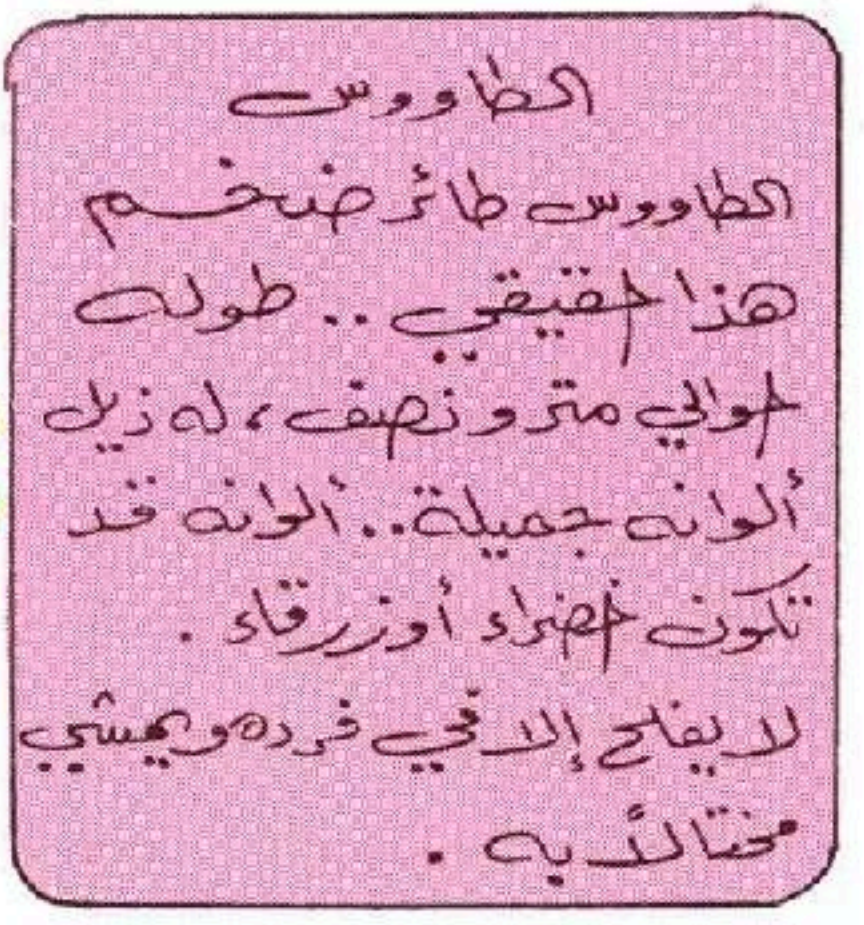 الطاووس
الطاووس طائر ضخم
هذا حقيقي .. طوله
حوالي متر و نصف، له زيل
ألوانه جميلة.. ألوانه قد
تكون خضراء أو زرقاء .
لا يفلح إلا في فرده ويمشي
مختالاً به .